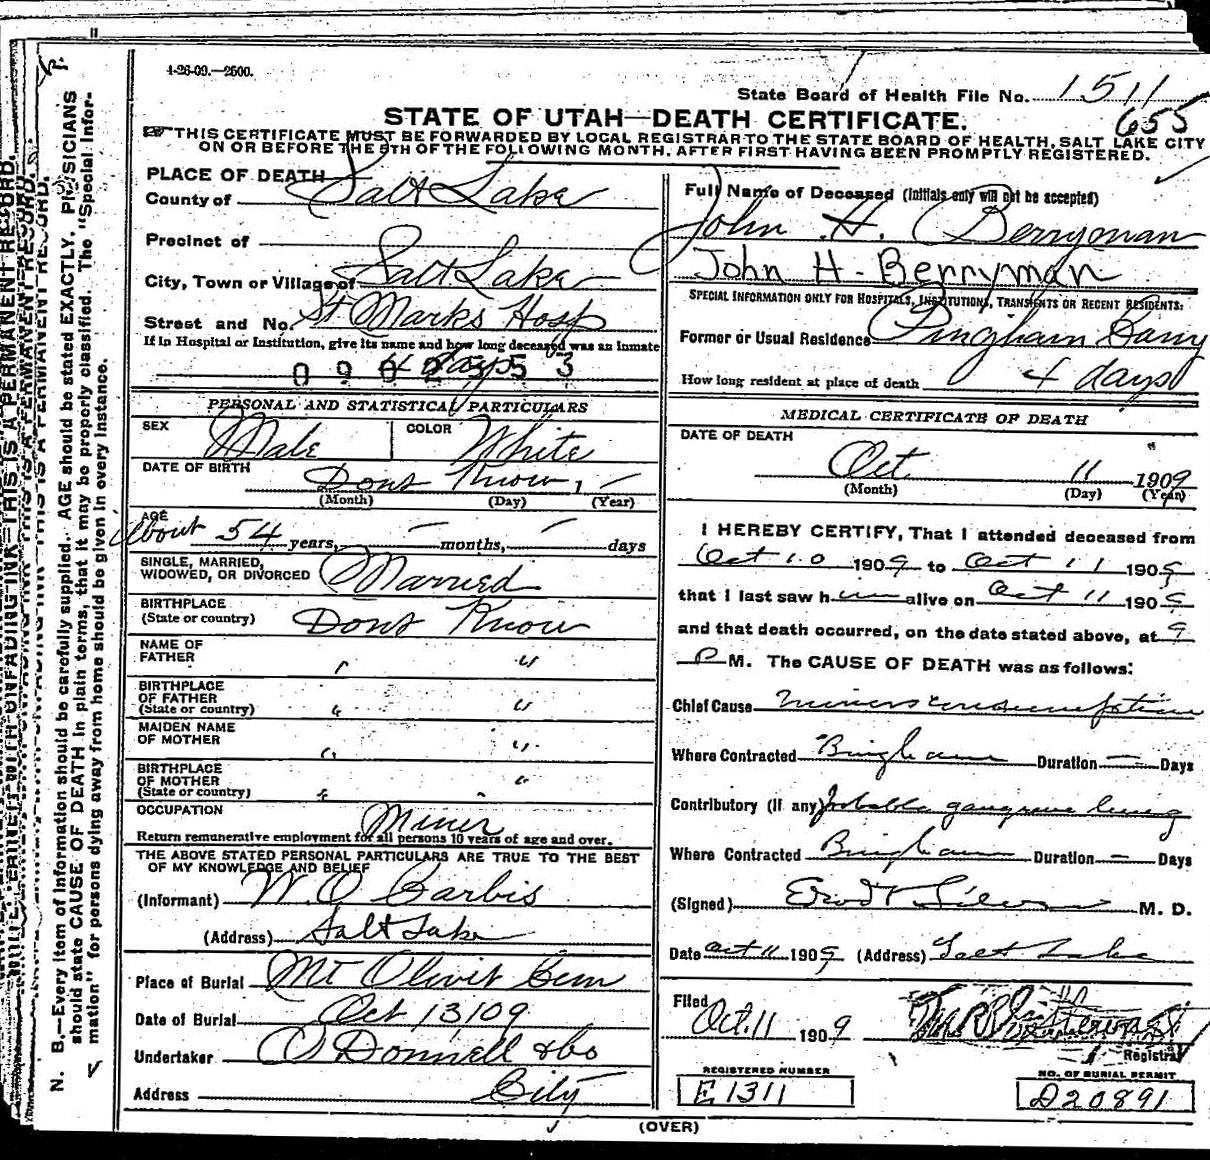 4-26-09.—2500.
State Board of Health File No. 1511
655
STATE OF UTAH—DEATH CERTIFICATE.
THIS CERTIFICATE MUST BE FORWARDED BY LOCAL REGISTRAR TO THE STATE BOARD OF HEALTH, SALT LAKE CITY
ON OR BEFORE THE 5TH OF THE FOLLOWING MONTH, AFTER FIRST HAVING BEEN PROMPTLY REGISTERED.
PLACE OF DEATH
County of Salt Lake
Precinct of
City, Town or Village of Salt Lake
Street and No. St Marks Hosp
If in Hospital or Institution, give its name and how long deceased was an inmate
4 days
PERSONAL AND STATISTICAL PARTICULARS
SEX Male COLOR White
DATE OF BIRTH Dont Know, —
(Month) (Day) (Year)
AGE
About 54 years, — months, — days
SINGLE, MARRIED,
WIDOWED, OR DIVORCED Married
BIRTHPLACE
(State or country) Dont Know
NAME OF
FATHER " "
BIRTHPLACE
OF FATHER
(State or country) " "
MAIDEN NAME
OF MOTHER " "
BIRTHPLACE
OF MOTHER
(State or country) " "
OCCUPATION Miner
Return remunerative employment for all persons 10 years of age and over.
THE ABOVE STATED PERSONAL PARTICULARS ARE TRUE TO THE BEST
OF MY KNOWLEDGE AND BELIEF
(Informant) W. O. Carbis
(Address) Salt Lake
Place of Burial Mt Olivit Cem
Date of Burial Oct 13/09
Undertaker O'Donnell & Co
Address City
Full Name of Deceased (Initials only will not be accepted)
John H. Berryman
John H. Berryman
SPECIAL INFORMATION ONLY FOR HOSPITALS, INSTITUTIONS, TRANSIENTS OR RECENT RESIDENTS:
Former or Usual Residence Bingham Cany
How long resident at place of death 4 days
MEDICAL CERTIFICATE OF DEATH
DATE OF DEATH
Oct 11 1909
(Month) (Day) (Year)
I HEREBY CERTIFY, That I attended deceased from
Oct 10 1909 to Oct 11 1909
that I last saw him alive on Oct 11 1909
and that death occurred, on the date stated above, at 9
P M. The CAUSE OF DEATH was as follows:
Chief Cause Miners consumption
Where Contracted Bingham Duration — Days
Contributory (If any) Probable gangrene lung
Where Contracted Bingham Duration — Days
(Signed) M. D.
Date Oct 11 1909 (Address) Salt Lake
Filed
Oct. 11 1909
Registrar
REGISTERED NUMBER
E1311
NO. OF BURIAL PERMIT
D20891
(OVER)
N. B.—Every item of information should be carefully supplied. AGE should be stated EXACTLY. PHYSICIANS
should state CAUSE OF DEATH in plain terms, that it may be properly classified. The "Special Infor-
mation" for persons dying away from home should be given in every instance.